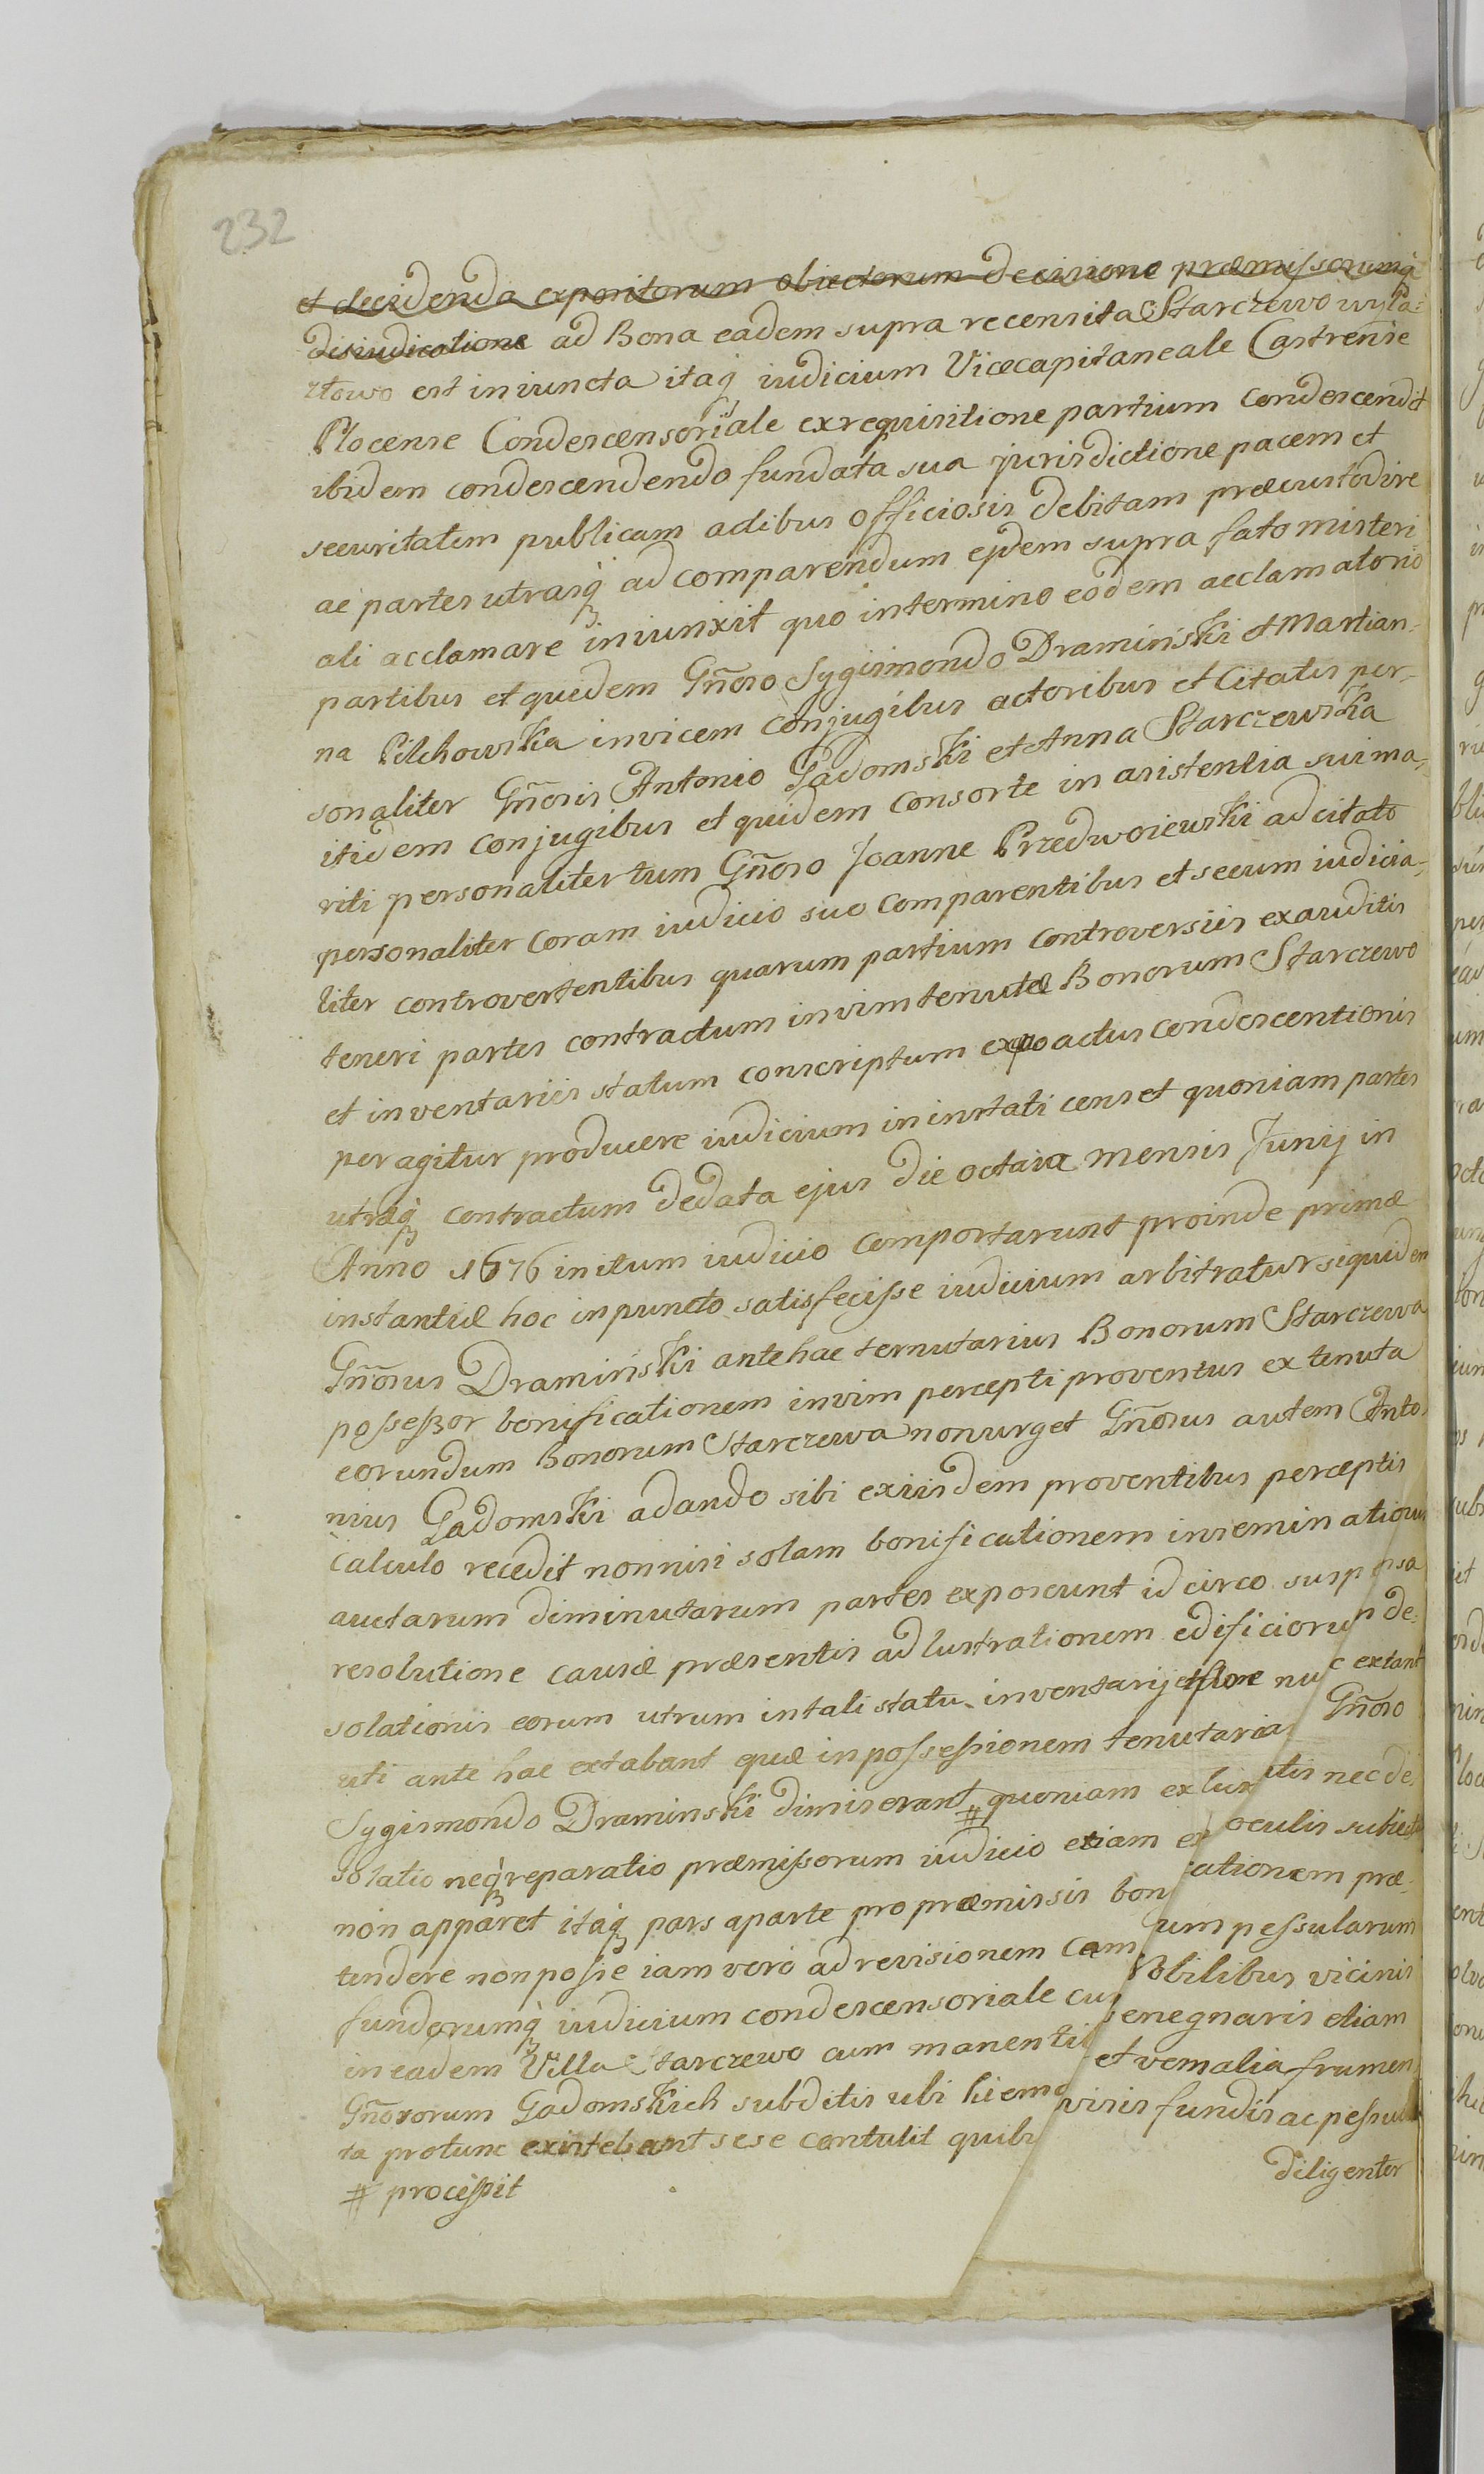 232
et decidenda expositorum obiectorum decisione præmissorumq
disiudicatione ad Bona eadem supra recensita Starczewo wyla=
złowo est iniuncta itaq iudicium Vicecapitaneale Castrense
Plocense Condescensoriale ex requisitione partium condescendit
ibidem condescendendo fundata sua jurisdictione pacem et
securitatem publicam adibus officiosis debitam præcustodire
ac partes utrasq ad comparendum ejdem supra fato misteri
ali acclamare iniunxit quo intermino eodem acclamatorio
partibus et quidem Gñoso Sygismondo Dramiński et Martian=
na Pilchowska invicem conjugibus actoribus et Citatis per=
sonaliter Gñosis Antonio Gadomski et Anna Starczewska
itidem conjugibus et quidem consorte in asistentia sui ma=
riti personaliter tum Gñoso Joanne Przedwoiewski adcitato
personaliter coram iudicio suo comparentibus et secum iudicia=
liter controvertentibus quarum partium controversiis exauditis
teneri partes contractum invim tenutæ Bonorum Starczewo
et inventariis statum conscriptum exquo actus condescentionis
peragitur producere iudicium in instati censet quoniam partes
utræq contractum dedata ejus die octava mensis Junij in
Anno 1676 initum iudicio comportarunt proinde primæ
instantiæ hoc inpuncto satisfecisse iudicium arbitratur siquidem
Gñosus Dramiński antehac ternutarius Bonorum Starczewa
possessor bonificationem invim percepti proventus ex tenuta
eorundum Bonorum Starczewa nonurget Gñosus autem Anto=
nius Gadomski adando sibi exiisdem proventibus perceptis
calculo recedit nonnisi solam bonificationem inseminationu
auctarum diminutarum partes exposcunt idcirco suspensa
resolutione causæ præsentis ad lustrationem edificiorum de=
solationis eorum utrum intali statu inventarij nunc extant
uti ante hac extabant quæ inpossessionem tenutaria Gñoso
Sygismondo Dramiński dimiserant # quoniam ex
solatio neq reparatio præmissorum iudicio etiam oculis subiecta
non apparet itaq pars aparte pro præmissis
tendere nonposse iam vero adrevisionem pessularum
fundorumq iudicium condescensoriale Nobilibus vicinis
ineadem Villa Starczewo cum etiam
Gñororum Gadomskich subditis ubi et vernalia frumen
ta protunc existebant sese contulit visis fundis ac
# processit
diligenter